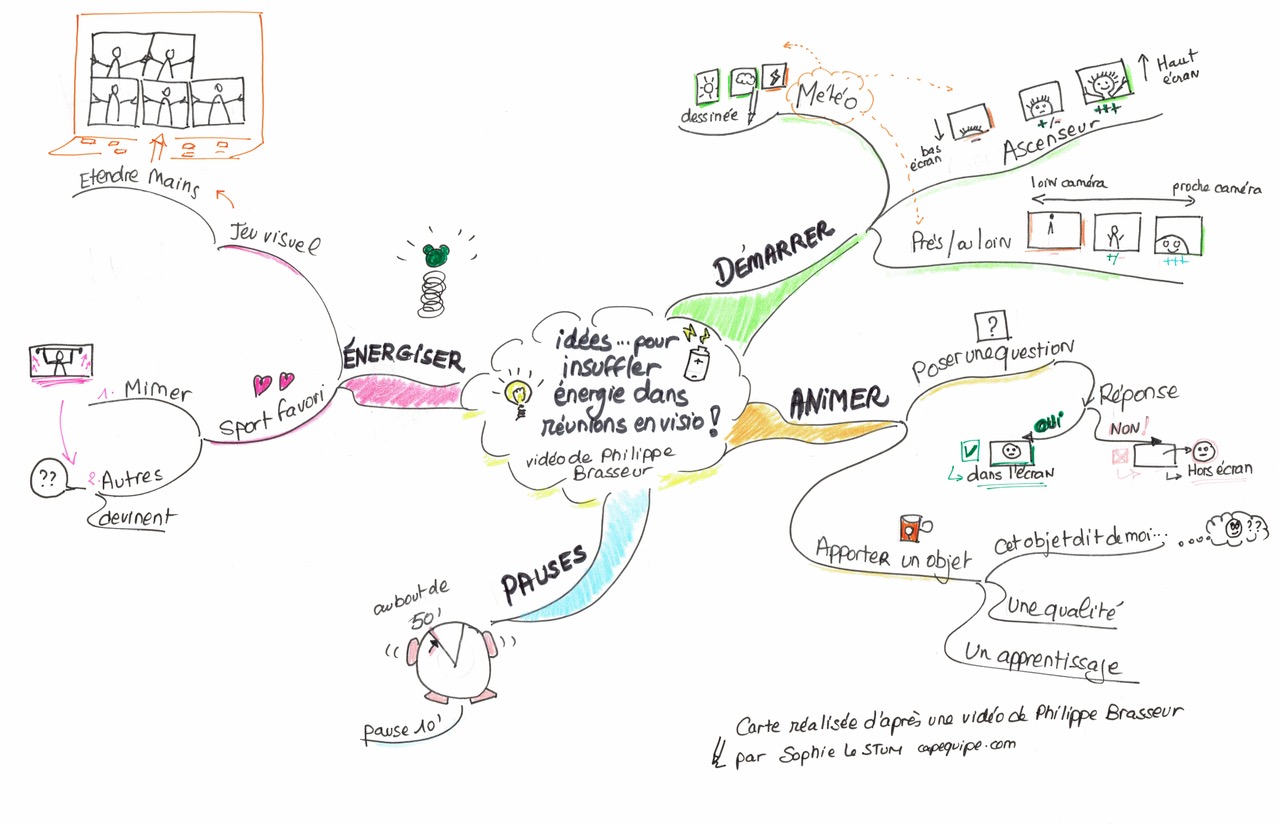 idées...pour
insuffler
énergie dans
réunions en visio !
vidéo de Philippe
Brasseur
DÉMARRER
Météo
dessinée
Ascenseur
bas
écran
+/-
+++
Haut
écran
Près/au loin
loin caméra
proche caméra
+/-
+++
ANiMER
Poser une question
?
Réponse
OUI
dans l'écran
NON!
Hors écran
Apporter un objet
Cet objet dit de moi...
??
Une qualité
Un apprentissage
PAUSES
au bout de
50'
pause 10'
ÉNERGISER
Jeu visuel
Etendre Mains
Sport favori
1. Mimer
2. Autres
devinent
??
Carte réalisée d'après une vidéo de Philippe Brasseur
par Sophie Le STUM capequipe.com